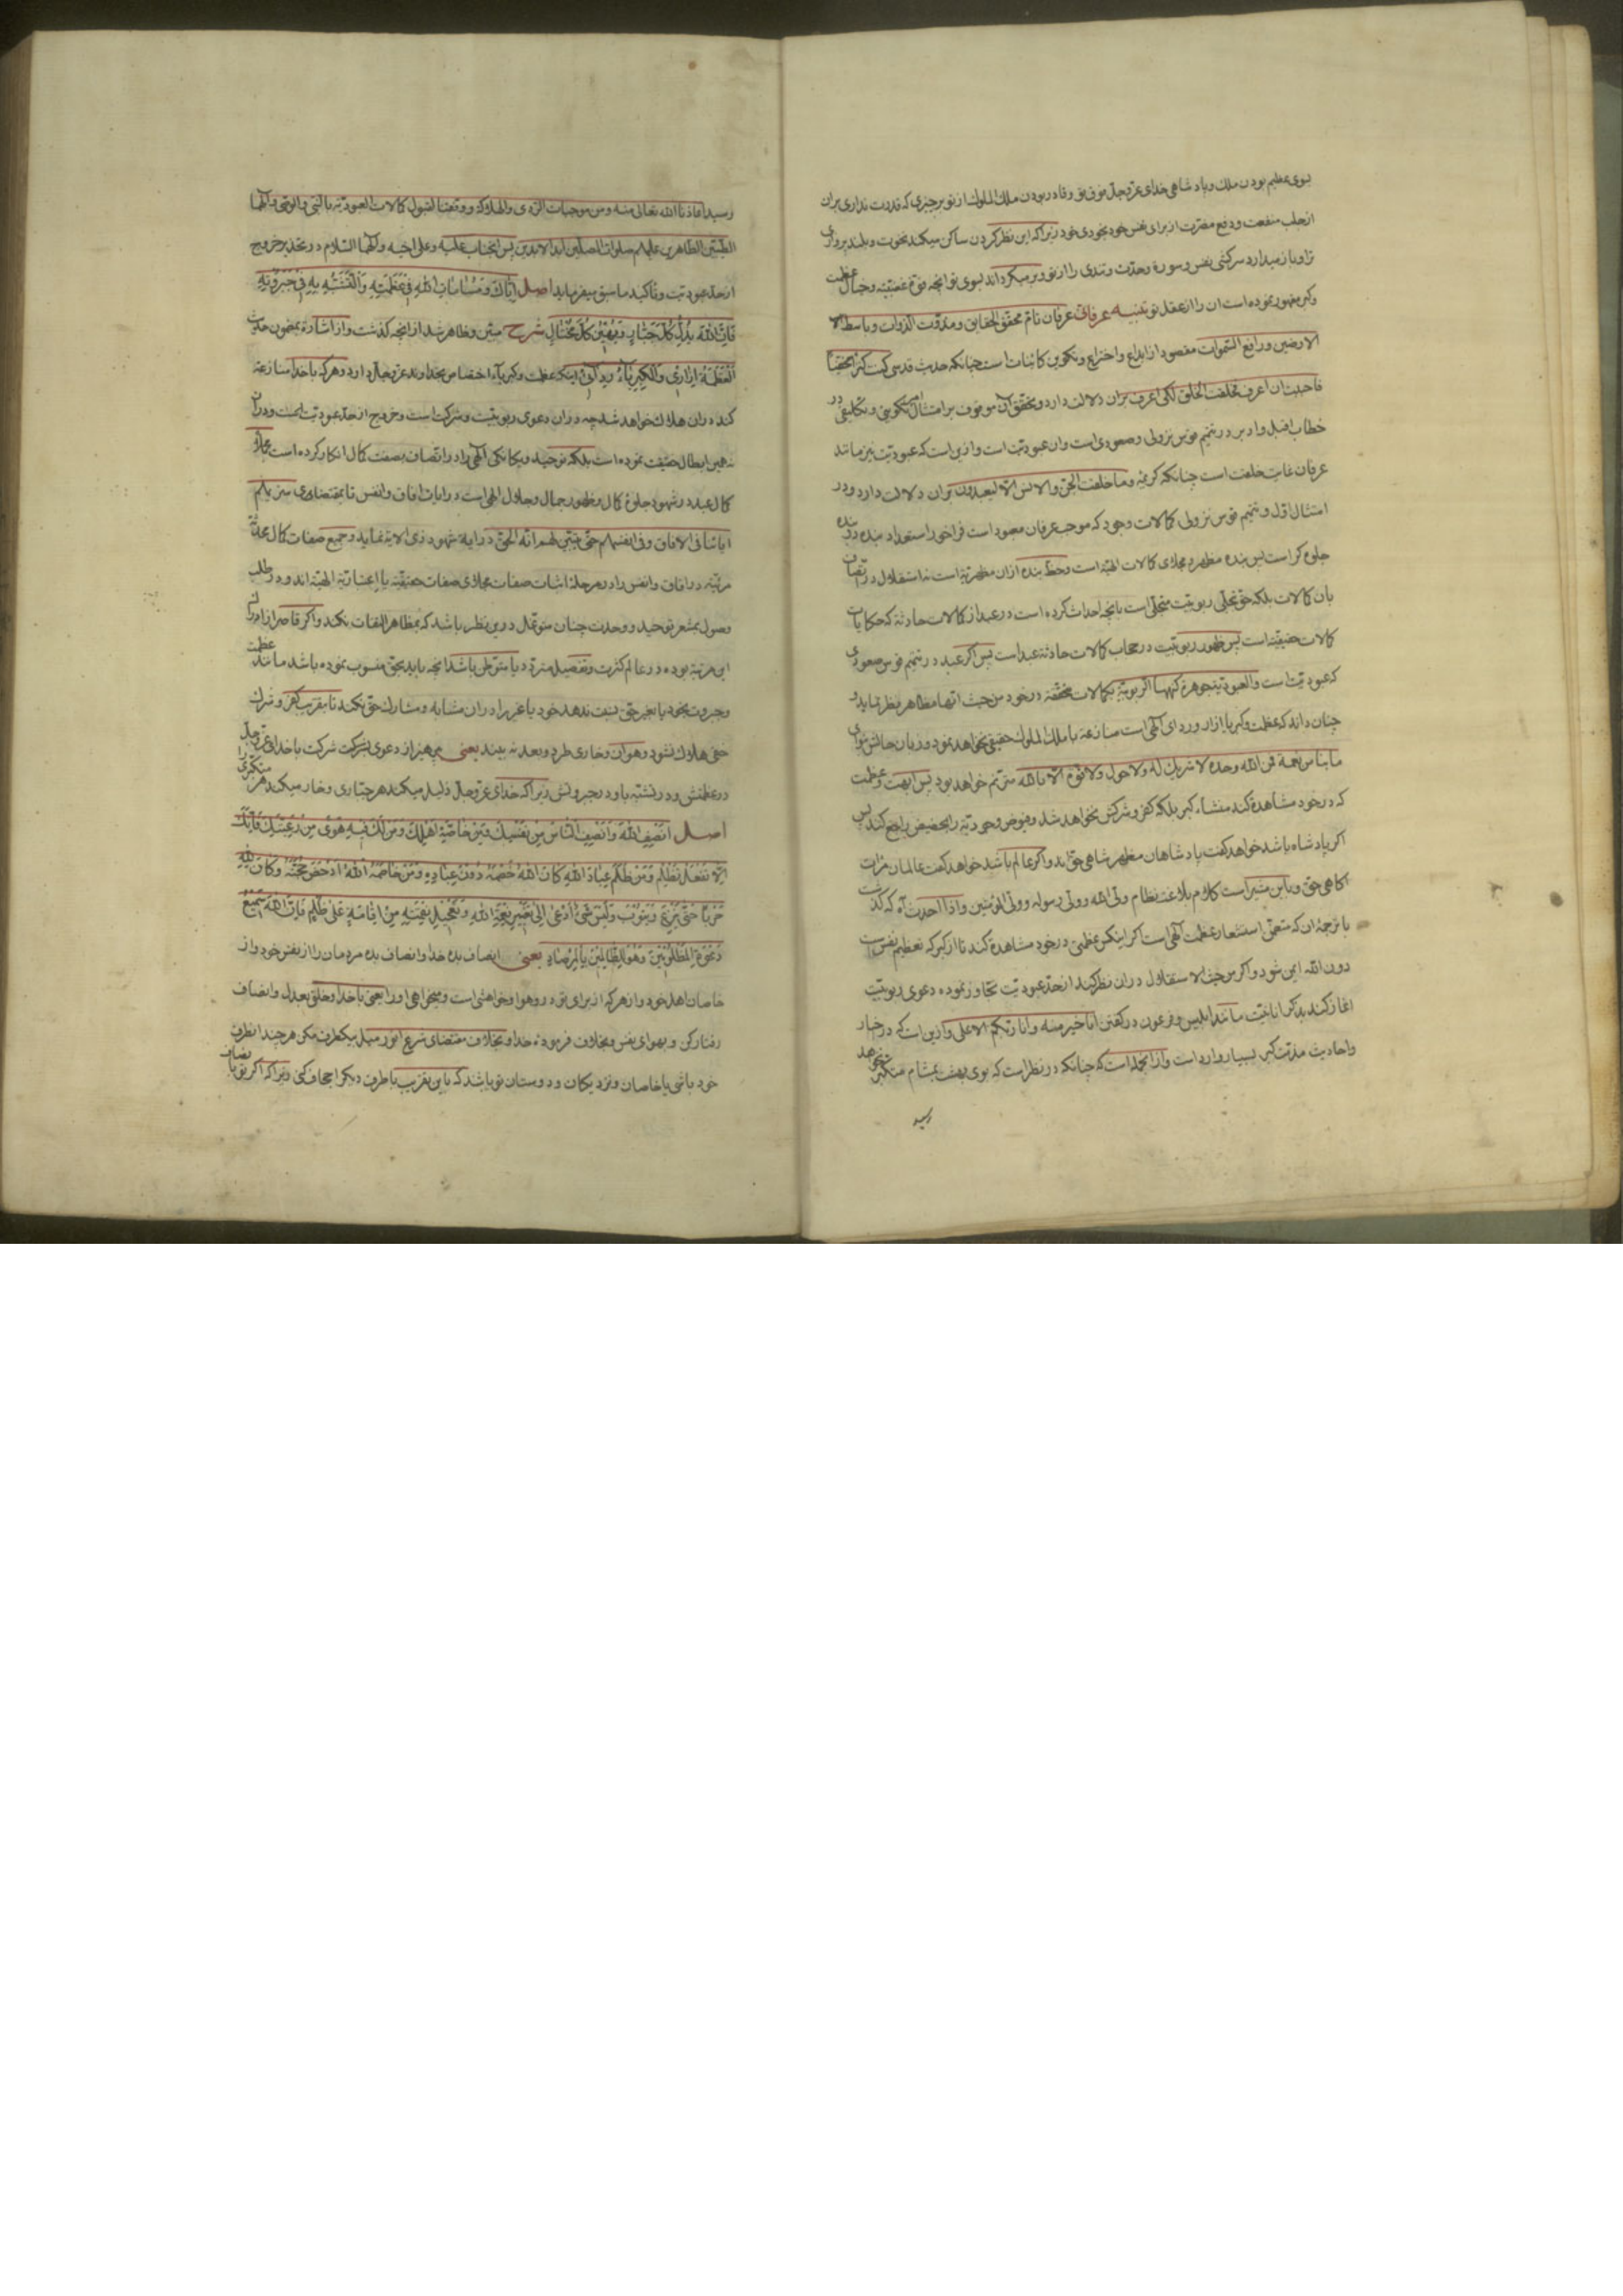 بسوی عظیم بودن ملك و پادشاهی خدای عزوجل فوق تو و قادر بودن ملك الملوك از تو بر چیزی که قدرت نداری بران
از جلب منفعت و دفع مضرت از برای نفس خود بخودی خود زیرا که این نظر کردن ساکن میکند نخوت و بلند پروازی
ترا و باز میدارد سرکشی نفس و سورة و حدت و تندی را از تو و بر میکرداند بسوی تو انچه قوة غضبیه و خیال عظمت
وکبر مقهور نموده است ان را از عقل تو تنبیه عرفانی عرفان تام محقق الحقایق و مذوت الذوات و باسط
الارضین و رافع السموات مقصود از ابداع و اختراع و تکوین کائنات است چنانکه حدیث قدسی کنت کنزا مخفیا
فاحببت ان اعرف فخلقت الخلق لکی اعرف بران دلالت دارد و تحقق آن موقوف بر امتثال امر تکوینی و تکلیفی در
خطاب اقبل و ادبر در تتمیم قوس نزولی و صعودی است و ان عبودیت است و ازین است که عبودیت نیز مانند
عرفان غایت خلقت است چنانکه کریمه و ما خلقت الجن والانس الا لیعبدون بران دلالت دارد و در
امتثال اول و تتمیم قوس نزولی کمالات وجود که موجب عرفان معبود است فراخور استعداد بنده در بنده
جلوه کر است پس بنده مظهر و مجلای کمالات الهیه است و حظ بنده ازان مظهریة است نه استقلال در اتصاف
بان کمالات بلکه حق تجلی ربوبیت متجلی است بانچه احداث کرده است در عبد از کمالات حادثه که حکایات
کمالات حقیقیه است پس ظهور ربوبیت در حجاب کمالات حادثه عبد است پس اکر عبد در تتمیم قوس صعودی
که عبودیت است والعبودیة جوهرة کنهها الربوبیة بکمالات محققه در خود من حیث انها مظاهر نظر نماید و
چنان داند که عظمت و کبریا ازار و ردای آلهی است منازعه با ملك الملوك حقیقی نخواهد نمود و زبان حالش بنوای
ما بنا من نعمة فمن الله وحده لا شریك له ولا حول ولا قوة الا بالله مترنم خواهد بود پس ابهت و عظمت
که در خود مشاهده کند منشاء کبر بلکه کفر و شرکش نخواهد شد و فیوض وجودیه را بحضیض راجع کند پس
اکر پادشاه باشد خواهد کفت پادشاهان مظهر شاهی حق اند و اکر عالم باشد خواهد کفت عالمان مرآت
آکاهی حق و باین مشیر است کلام بلاغت نظام ولی الله و ولی رسوله و ولی المؤمنین و اذا احدث آه که کذشت
با ترجمۀ ان که متضمن استشعار عظمت آلهی است اکر اینکس عظمتی در خود مشاهده کند تا از کبر که تعظیم نفس است
دون الله ایمن شود و اکر من حیث الاستقلال دران نظر کند از حد عبودیت تجاوز نموده دعوی ربوبیت
اغاز کند بذکر انانیت مانند ابلیس و فرعون در کفتن انا خیر منه و انا ربکم الاعلی و ازین است که در اخبار
و احادیث مذمت کبر بسیار وارد است و ازانجمله است که چنانکه در نظر است که بوی بهشت بمشام متکبر نخواهد
رسید
رسید اعاذنا الله تعالی منه و من موجبات الردی والهلاکة و وفقنا لقبول کمالات العبودیة بالنبی والوصی و آلهما
الطیبین الطاهرین علیهم صلوات المصلین ابد الابدین پس انجناب علیه و علی اخیه و الهما السلام در تحذیر خروج
از حد عبودیت و تاکید ما سبق میفرماید اصل اِیَّاكَ وَمُسَامَاتِ اللهِ فِی عَظَمَتِهِ وَالتَّشَبُّهَ بِهِ فِی جَبَرُوتِهِ
فَاِنَّ اللهَ یُذِلُّ کُلَّ جَبَّارٍ وَیُهِینُ کُلَّ مُخْتَالٍ شرح مبین و ظاهر شد از انچه کذشت و از اشاره بمضمون حدیث
اَلْعَظَمَةُ اِزَارِی وَالْکِبْرِیَاءُ رِدَائِی اینکه عظمت و کبریاء اختصاص بخداوند عزوجل دارد و هرکه با خدا منازعه
کند دران هلاك خواهد شد چه دران دعوی ربوبیت و شرکت است و خروج از حد عبودیت است و دران
نه همین ابطال حقیقت نموده است بلکه توحید و یکانکی آلهی را در اتصاف بصفت کمال انکار کرده است چه
کمال عبد در شهود جلوۀ کمال و ظهور جمال و جلال الهی است در ایات افاق و انفس تا بمقتضای سنریهم
ایاتنا فی الافاق و فی انفسهم حتی یتبین لهم انه الحق در ایه شهود ذی الایه نماید و جمیع صفات کمال
مرتبه در افاق و انفس را در مرحلۀ اثبات صفات مجلای صفات حقیقیه یا اعتباریة الهیه اند و در طلب
وصول بمشعر توحید و وحدت چنان متوغل درین نظر باشد که بمظاهر التفات نکند و اکر قاصر از ادراك
این مرتبه بوده در عالم کثرت و تفصیل متردد یا متوطن باشد انچه باید بحق منسوب نموده باشد مانند عظمت
و جبروت بخود یا بغیر حق نسبت ندهد خود یا غیر را دران مشابه و مشارك حق نکند تا بقرب کفر و شرك
خفی هلاك نشود و هوان و خاری طرد و بعد نه بیند یعنی بپرهیز از دعوی شرکت با خدای عزوجل
در عظمتش و در تشبه باو در جبروتش زیرا که خدای عزوجل ذلیل میکند هر جباری و خار میکند هر متکبری را
اصل اَنْصِفِ اللهَ وَاَنْصِفِ النَّاسَ مِنْ نَفْسِكَ وَمِنْ خَاصَّةِ اَهْلِكَ وَمَنْ لَكَ فِیهِ هَوًی مِنْ رَعِیَّتِكَ فَاِنَّكَ
اِلَّا تَفْعَلْ تَظْلِمْ وَمَنْ ظَلَمَ عِبَادَ اللهِ کَانَ اللهُ خَصْمَهُ دُونَ عِبَادِهِ وَمَنْ خَاصَمَهُ اللهُ اَدْحَضَ حُجَّتَهُ وَکَانَ لِلّهِ
حَرْبًا حَتَّی یَنْزِعَ وَیَتُوبَ وَلَیْسَ شَیْءٌ اَدْعَی اِلَی تَغْیِیرِ نِعْمَةِ اللهِ وَتَعْجِیلِ نِقْمَتِهِ مِنْ اِقَامَةٍ عَلَی ظُلْمٍ فَاِنَّ اللهَ سَمِیعٌ
دَعْوَةَ الْمَظْلُومِینَ وَهُوَ لِلظَّالِمِینَ بِالْمِرْصَادِ یعنی انصاف بده خدا و انصاف بده مردمان را از نفس خود و از
خاصان اهل خود و از هرکه از برای تو در و هوا و خواهشی است و میخواهی او را یعنی با خدا و خلق بعدل و انصاف
رفتار کن و بهوای نفس و بخلاف فرمودۀ خدا و بخلاف مقتضای شرع انور میل بیکطرف مکن هر چند انطرف
خود باشی یا خاصان و نزدیکان و دوستان تو باشد که باین تقریب با طرف دیکر اجحاف کنی زیرا که اکر تو با انصاف